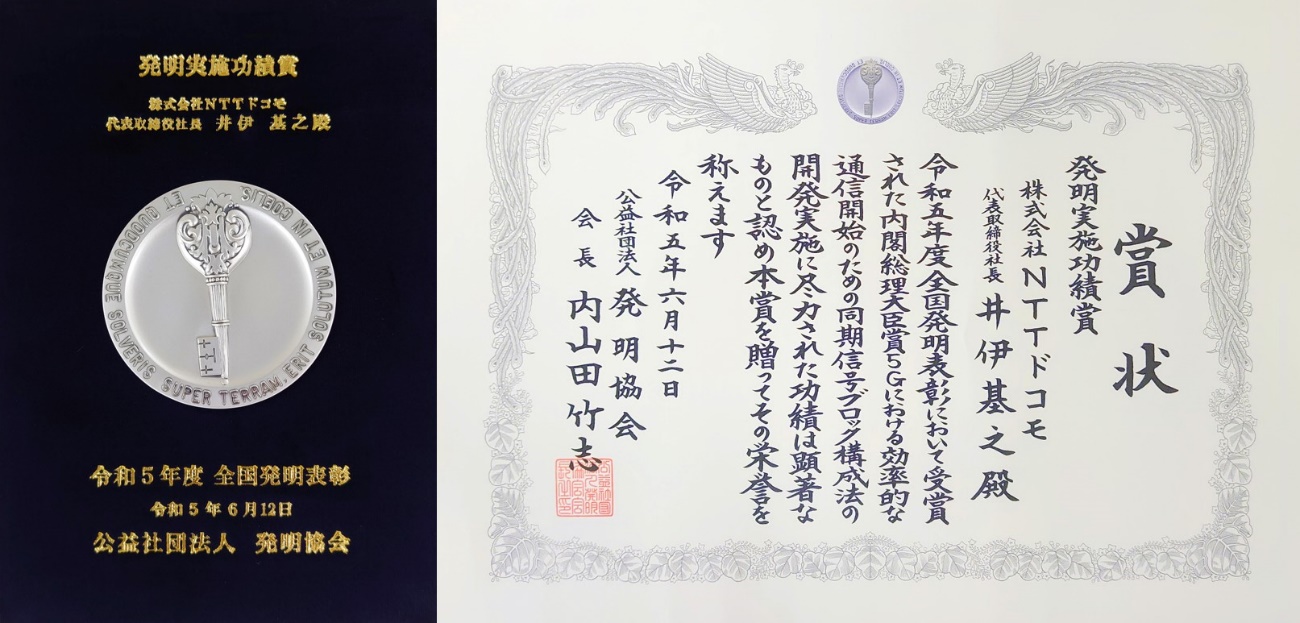 発明実施功績賞
株式会社NTTドコモ
代表取締役社長 井伊 基之殿
ET QUODCUMQUE SOLVERIS SUPER TERRAM, ERIT SOLUTUM ET IN COELIS
令和5年度 全国発明表彰
令和5年6月12日
公益社団法人 発明協会
賞状
発明実施功績賞
株式会社NTTドコモ
代表取締役社長 井伊基之殿
令和五年度全国発明表彰において受賞
された内閣総理大臣賞5Gにおける効率的な
通信開始のための同期信号ブロック構成法の
開発実施に尽力された功績は顕著な
ものと認め本賞を贈ってその栄誉を
称えます
令和五年六月十二日
公益社団法人 発明協会
会長 内山田竹志